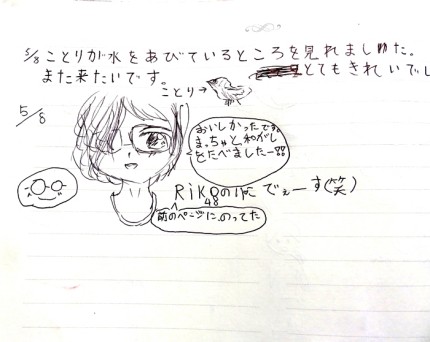 5/8 ことりが水をあびているところを見れましゅた。
また来たいです。
とてもきれいでし
ことり→
5/8
おいしかったです。
まっちゃと和がし
をたべましたー!!
RiKoの でぇーす(笑)
48
前のページに、のってた